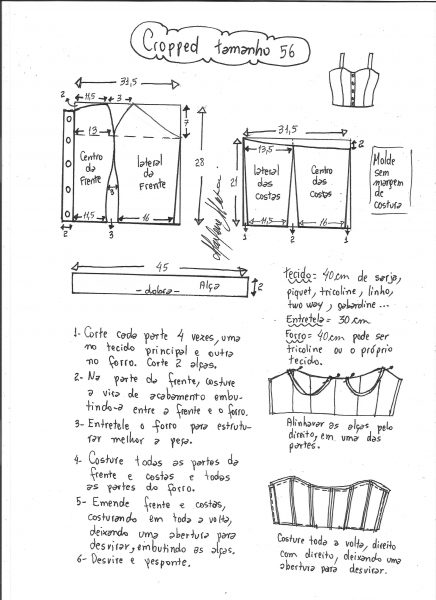 Cropped tamanho 56
31,5
2
11,5
3
7
13
28
Centro
da
Frente
lateral
da
Frente
3
11,5
16
2
3
31,5
13,5
2
21
lateral
das
costas
Centro
das
costas
11,5
16
1
2
1
Molde
sem
margem
de
costura
45
Alça
- dobra -
2
tecido = 40cm de sarja,
piquet, tricoline, linho,
two way, gabardine...
Entretela = 30cm
Forro = 40cm pode ser
tricoline ou o próprio
tecido.
1- Corte cada parte 4 vezes, uma
no tecido principal e outra
no forro. Corte 2 alças.
2- Na parte da frente, costure
a vira de acabamento embu-
tindo-a entre a frente e o forro.
3- Entretele o forro para estrutu-
rar melhor a peça.
4- Costure todas as partes da
frente e costas e todas
as partes do forro.
5- Emende frente e costas,
costurando em toda a volta,
deixando uma abertura para
desvirar, embutindo as alças.
6- Desvire e pesponte.
Alinhavar as alças pelo
direito, em uma das
partes.
Costure toda a volta, direito
com direito, deixando uma
abertura para desvirar.